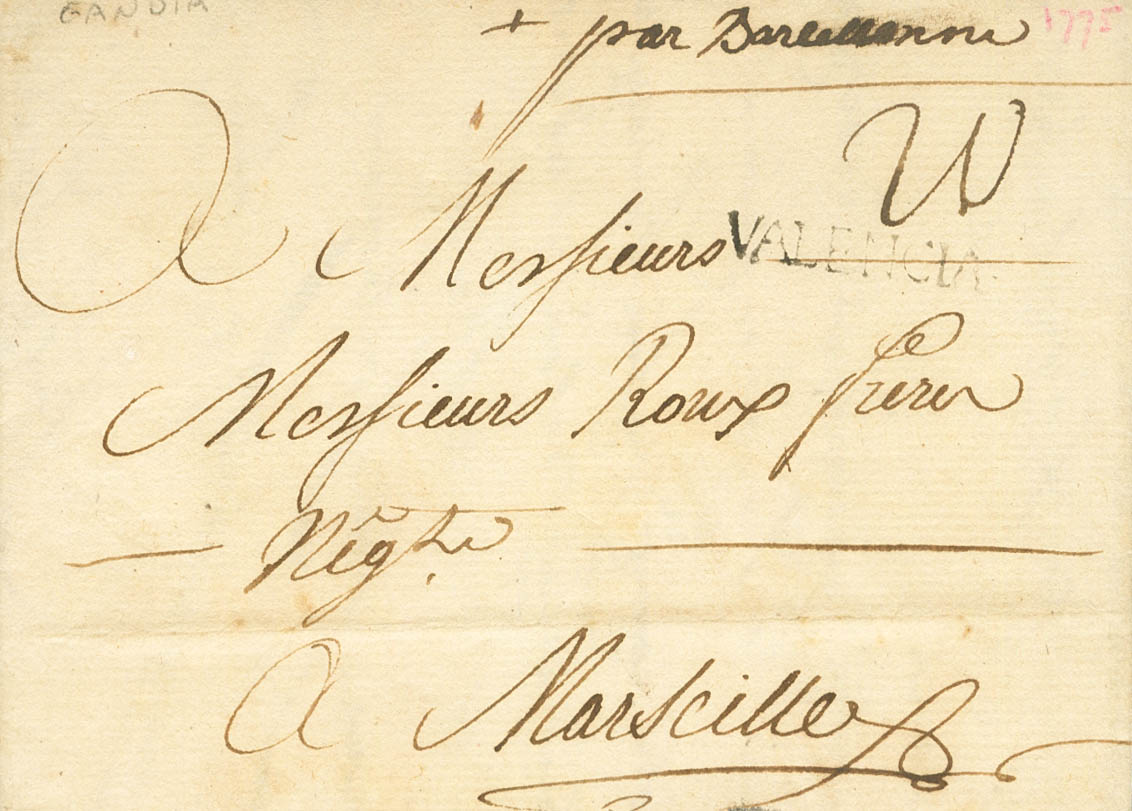 GANDIA
+ par Barcellonne
1775
A Messieurs
VALENCIA
Messieurs Roux freres
Nẽgts
A Marseille